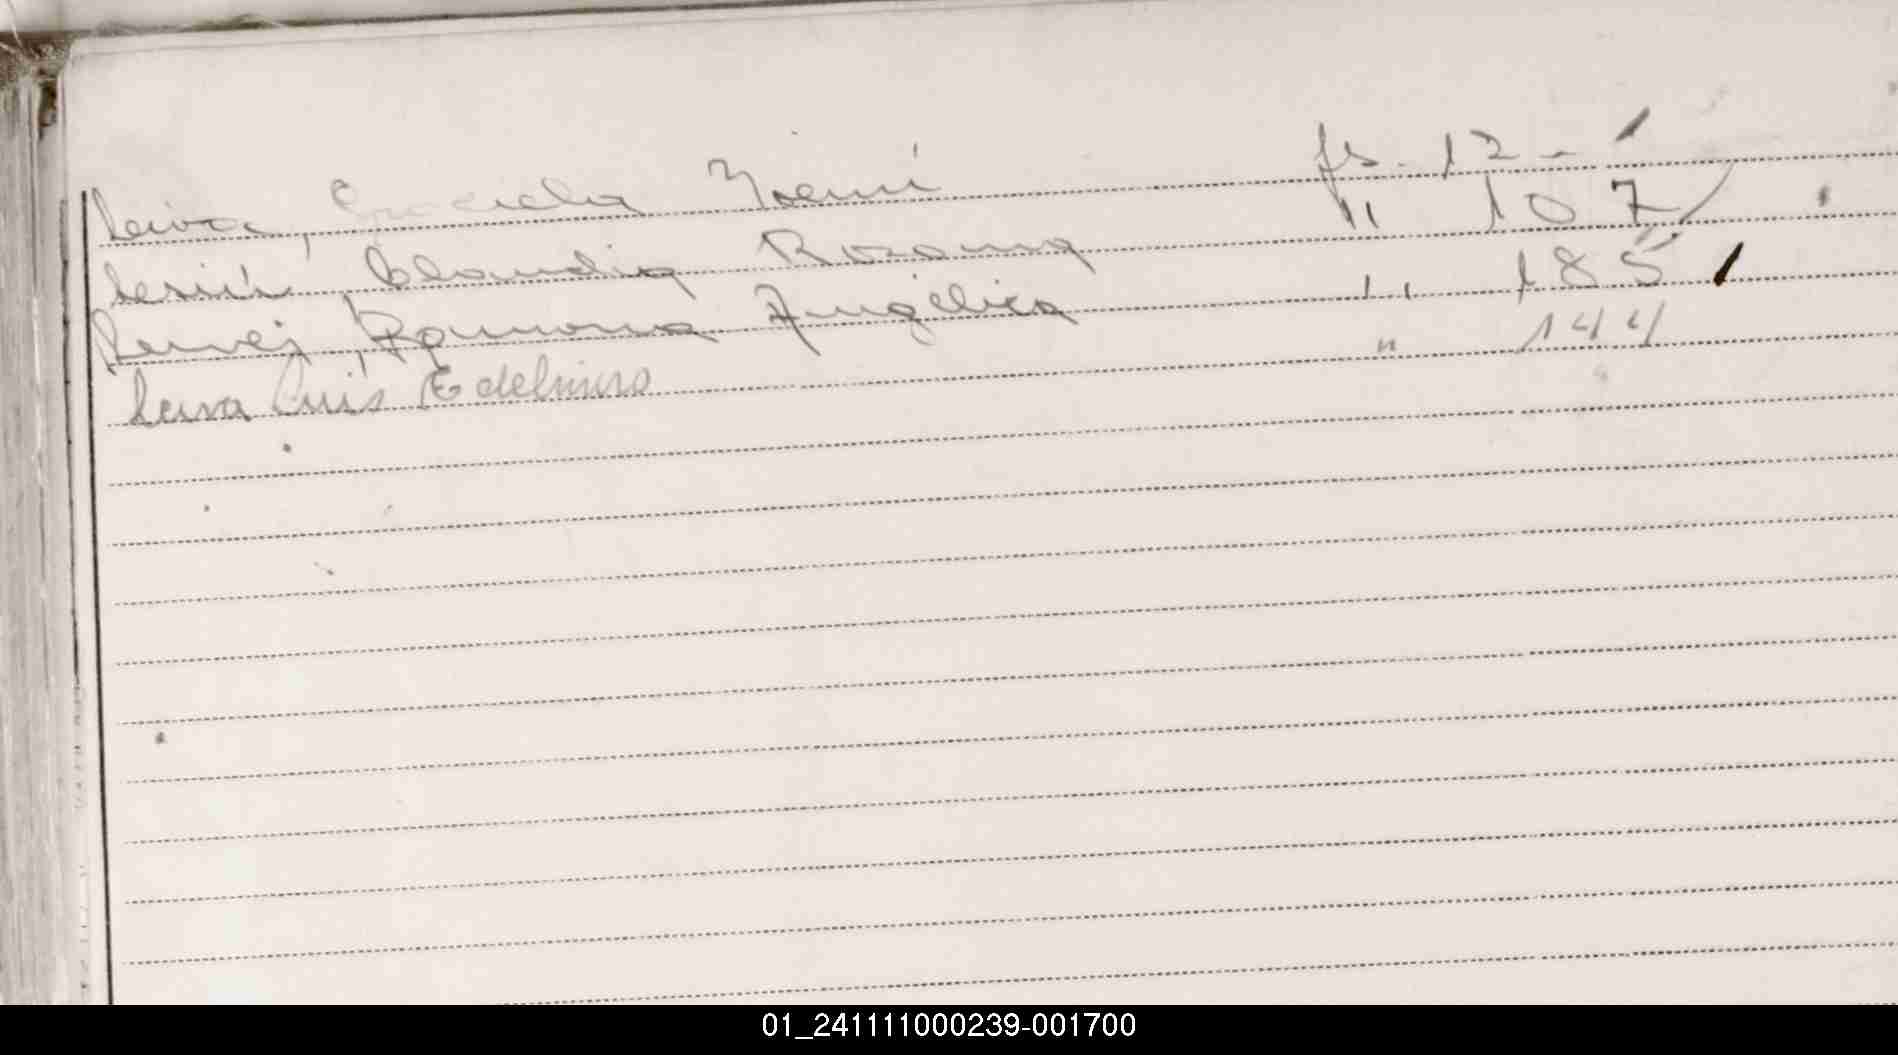 Leiva, Graciela Noemí fs. 12 -
Claudia Rosana " 107
Ramona Angélica " 185
Leiva Luis Edelmiro " 144
01_241111000239-001700